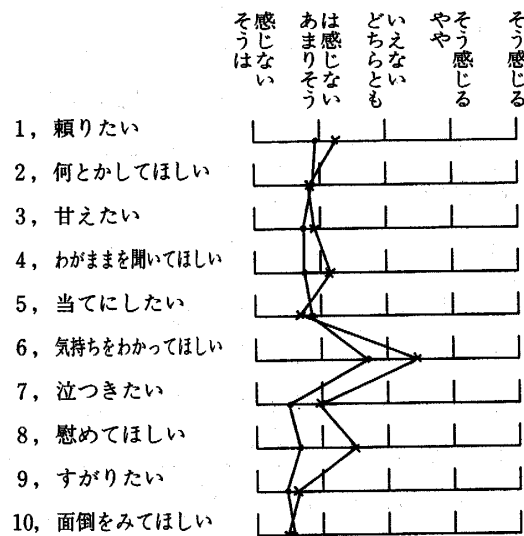 そうは
感じない
あまりそう
は感じない
どちらとも
いえない
やや
そう感じる
そう感じる
1, 頼りたい
2, 何とかしてほしい
3, 甘えたい
4, わがままを聞いてほしい
5, 当てにしたい
6, 気持ちをわかってほしい
7, 泣つきたい
8, 慰めてほしい
9, すがりたい
10, 面倒をみてほしい